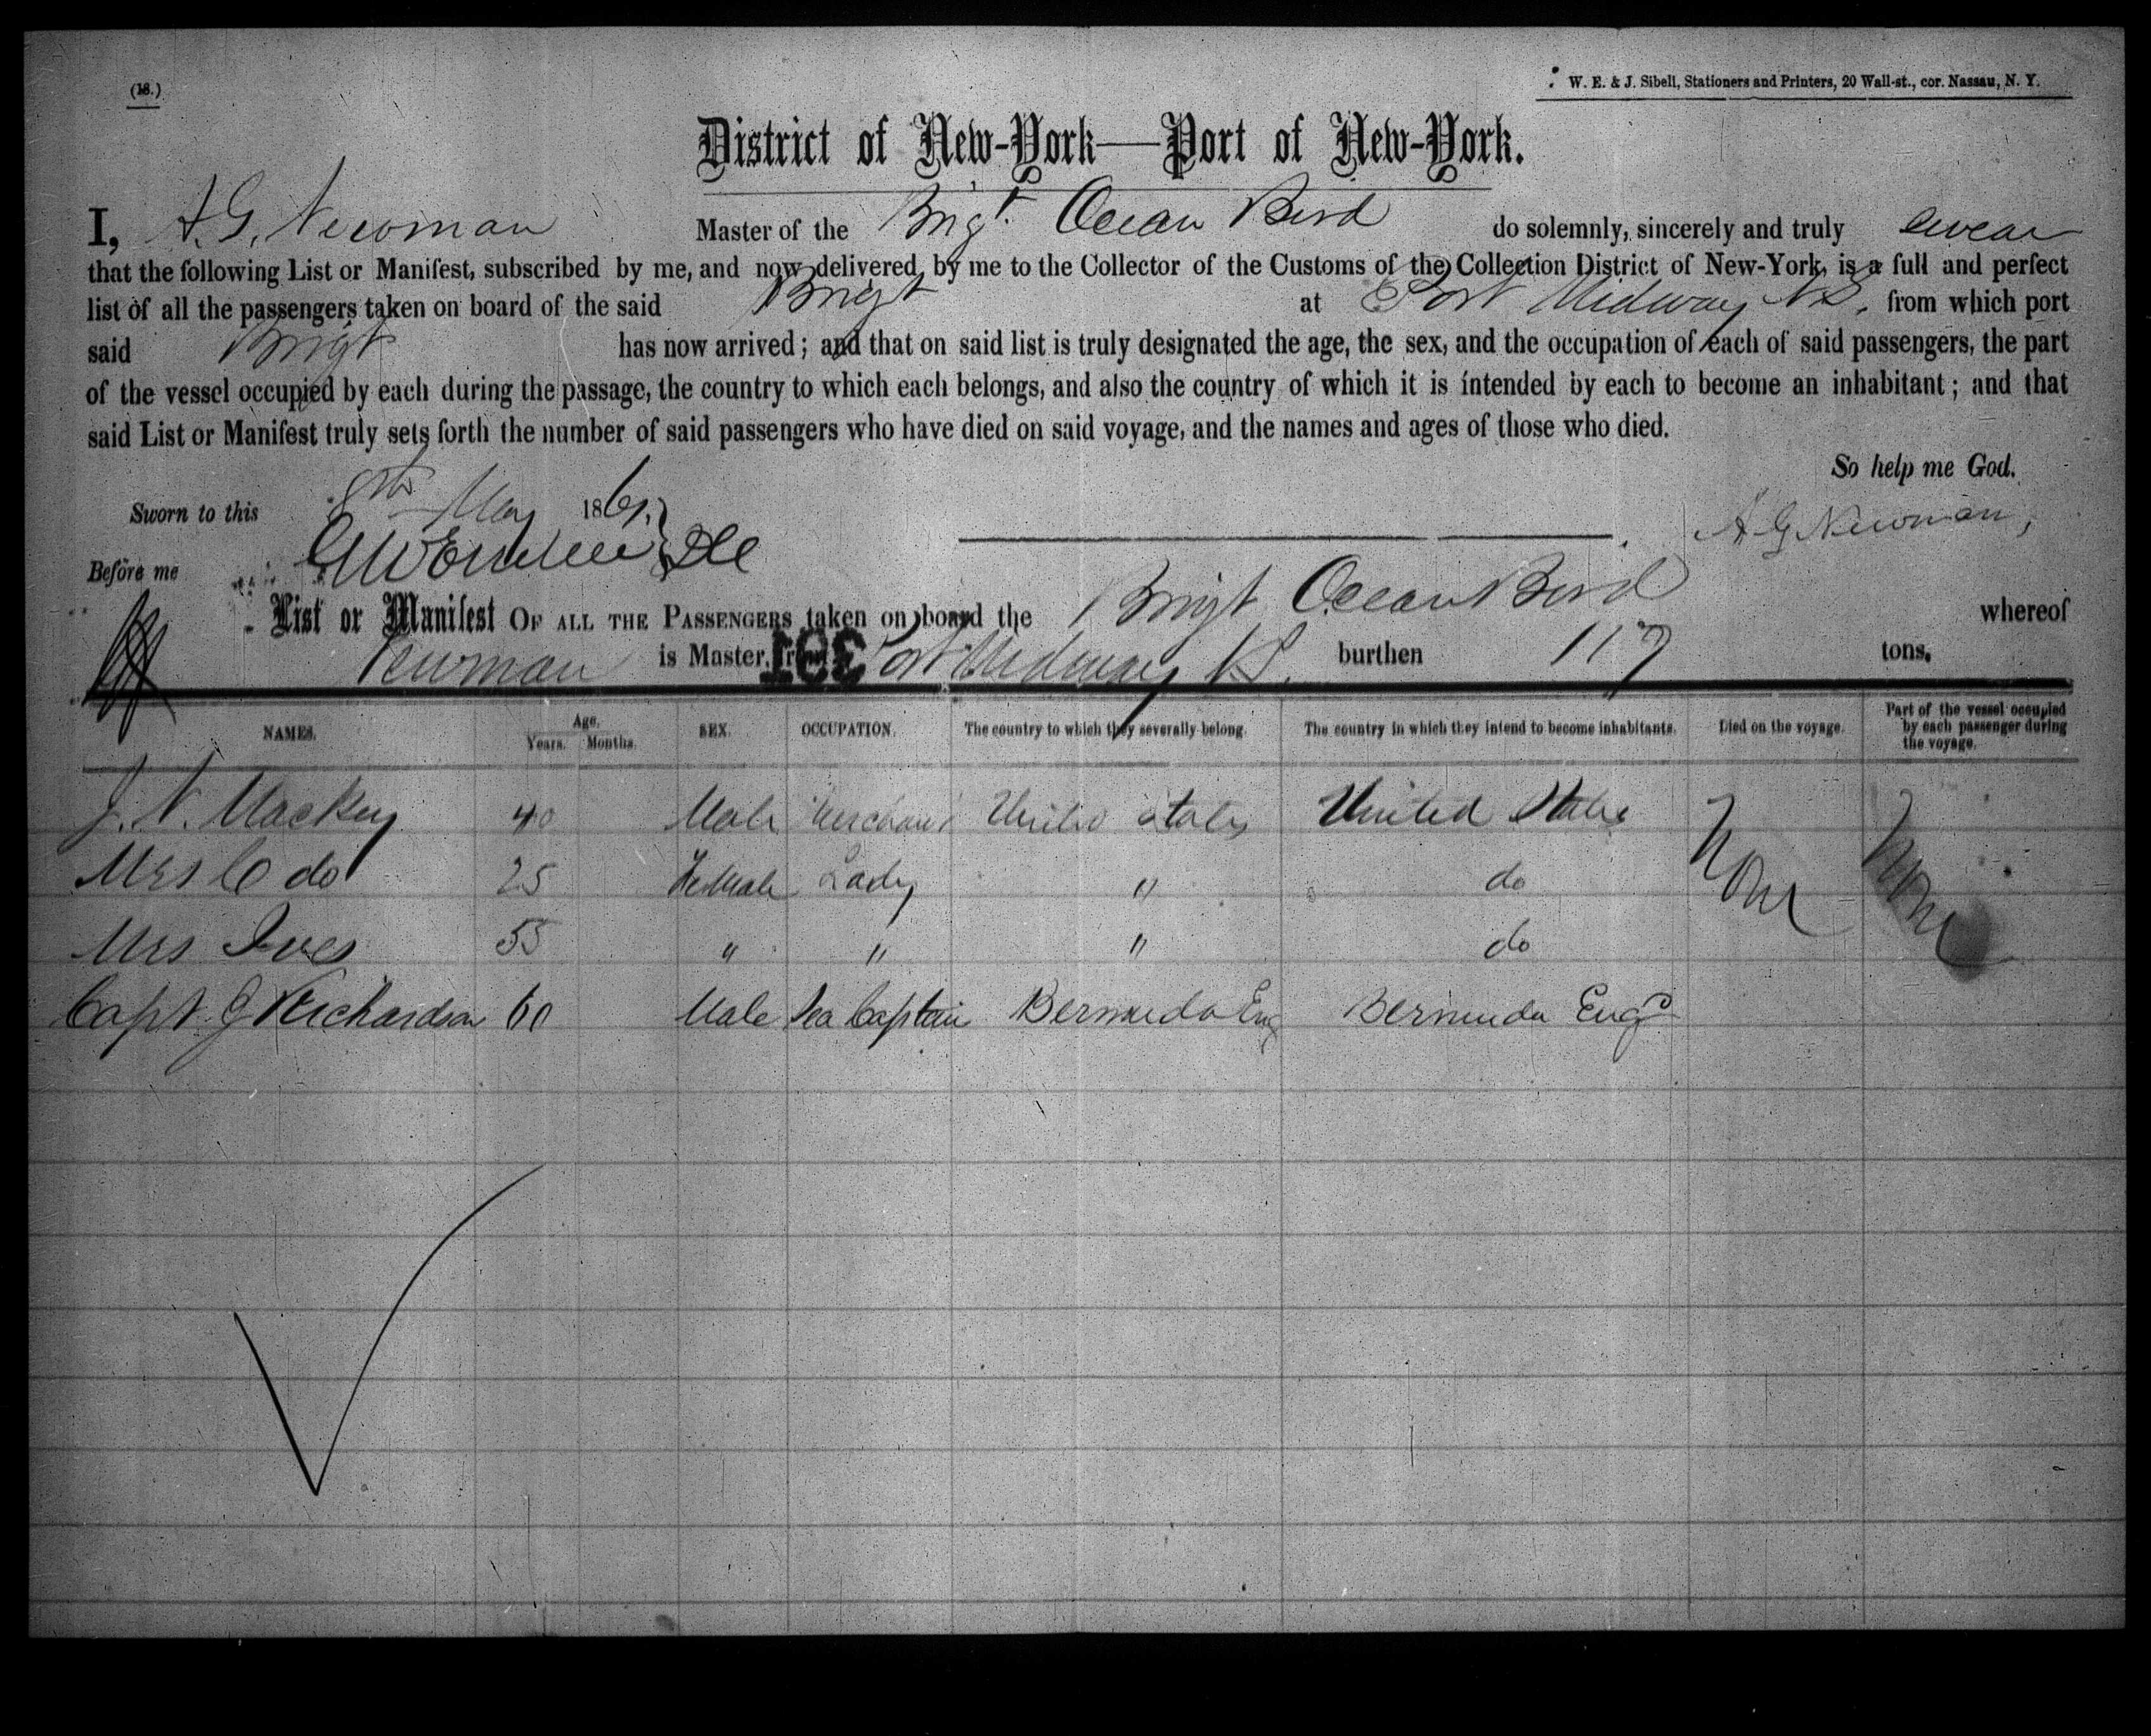 (18.)
W. E. & J. Sibell, Stationers and Printers, 20 Wall-st., cor. Nassau, N. Y.
District of New-York—Port of New-York.
I, A. G. Newman Master of the Brigt. Ocean Bird do solemnly, sincerely and truly swear
that the following List or Manifest, subscribed by me, and now delivered by me to the Collector of the Customs of the Collection District of New-York, is a full and perfect
list of all the passengers taken on board of the said Brigt at Port Midway N.S. from which port
said Brigt has now arrived; and that on said list is truly designated the age, the sex, and the occupation of each of said passengers, the part
of the vessel occupied by each during the passage, the country to which each belongs, and also the country of which it is intended by each to become an inhabitant; and that
said List or Manifest truly sets forth the number of said passengers who have died on said voyage, and the names and ages of those who died.
So help me God.
Sworn to this 8th May 1861. A G Newman,
Before me
List or Manifest OF ALL THE PASSENGERS taken on board the Brigt Ocean Bird whereof
Newman is Master, from Port Midway N.S. burthen 117 tons.
331
NAMES. Age. Years. Months. SEX. OCCUPATION. The country to which they severally belong. The country in which they intend to become inhabitants. Died on the voyage. Part of the vessel occupied by each passenger during the voyage.
J. N. Mackey 40 Male Merchant United States United States None None
Mrs C do 25 Female Lady " do
Mrs Ives 55 " " " do
Capt. J Richardson 60 Male Sea Captain Bermuda Eng Bermuda Engd